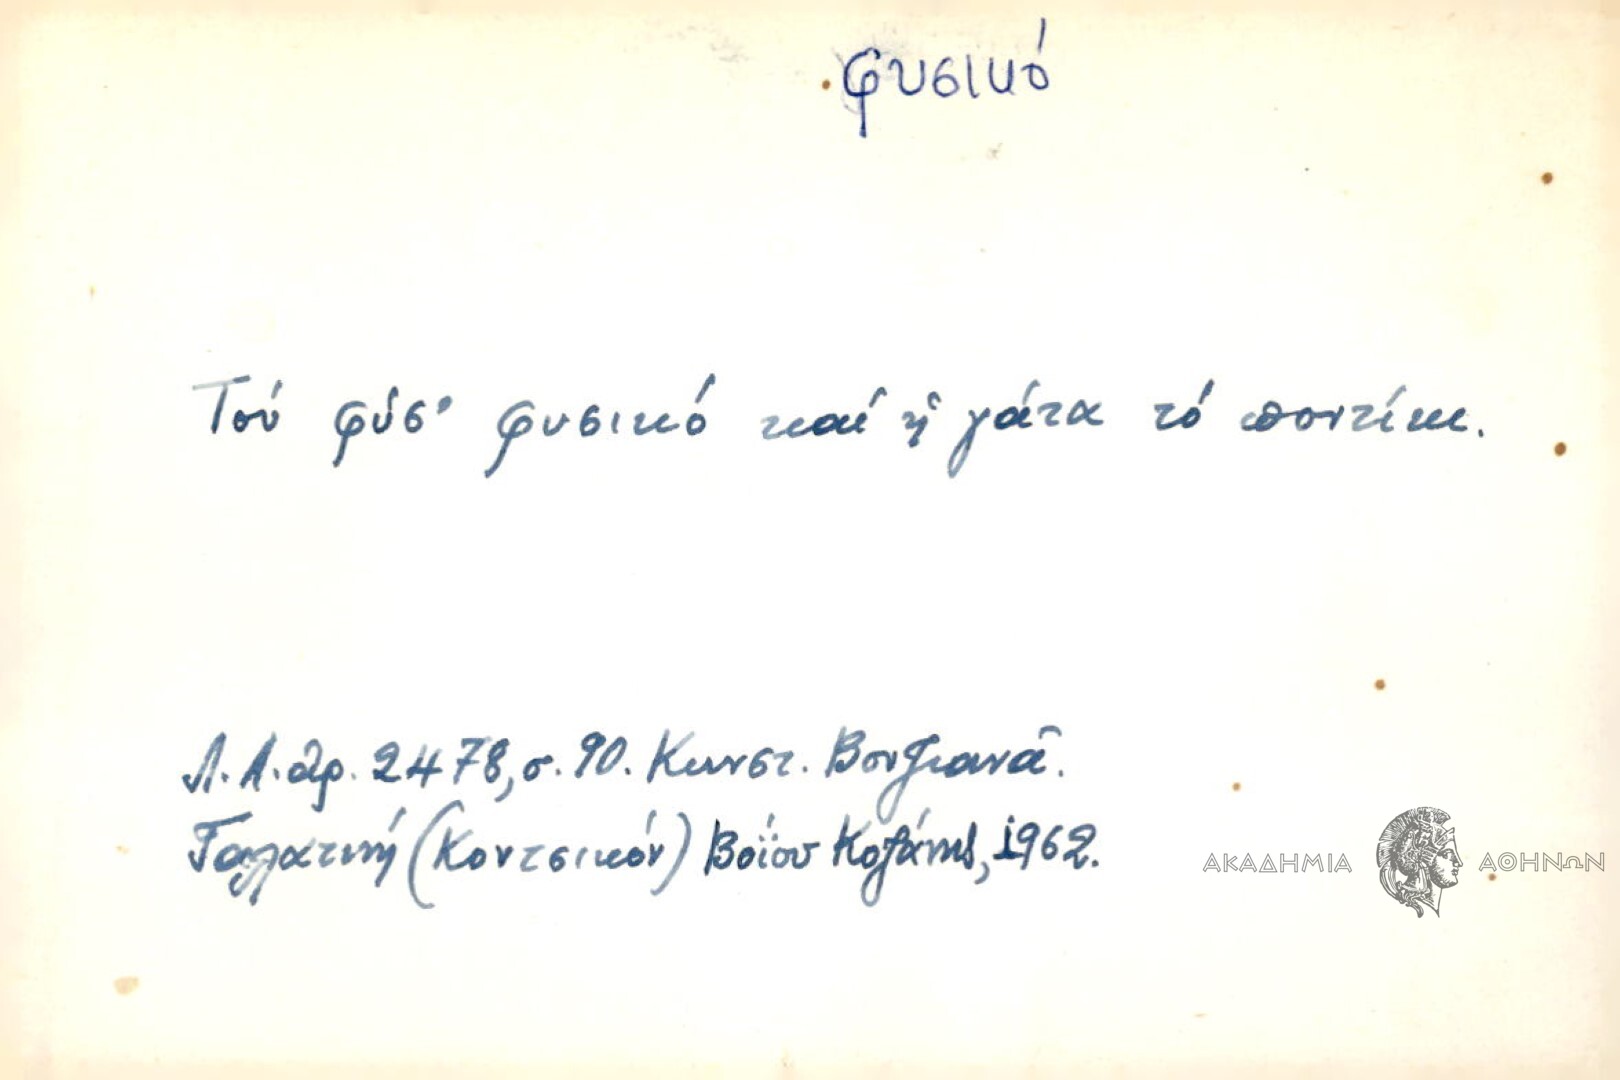 φυσικό
Τού φύσ' φυσικό καί ἡ γάτα τό ποντίκι.
Λ.Α. ἀρ. 2478, σ. 90. Κωνστ. Βουζιανᾶ.
Γαλατινή (Κοντσικόν) Βοΐου Κοζάνης, 1962.
ΑΚΑΔΗΜΙΑ ΑΘΗΝΩΝ